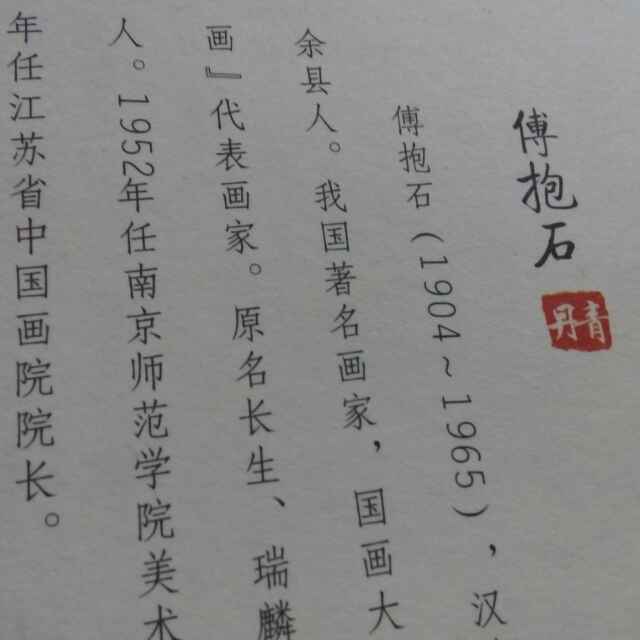 傅抱石
青丹
傅抱石（1904~1965），汉
余县人。我国著名画家，国画大
画』代表画家。原名长生、瑞麟
人。1952年任南京师范学院美术
年任江苏省中国画院院长。